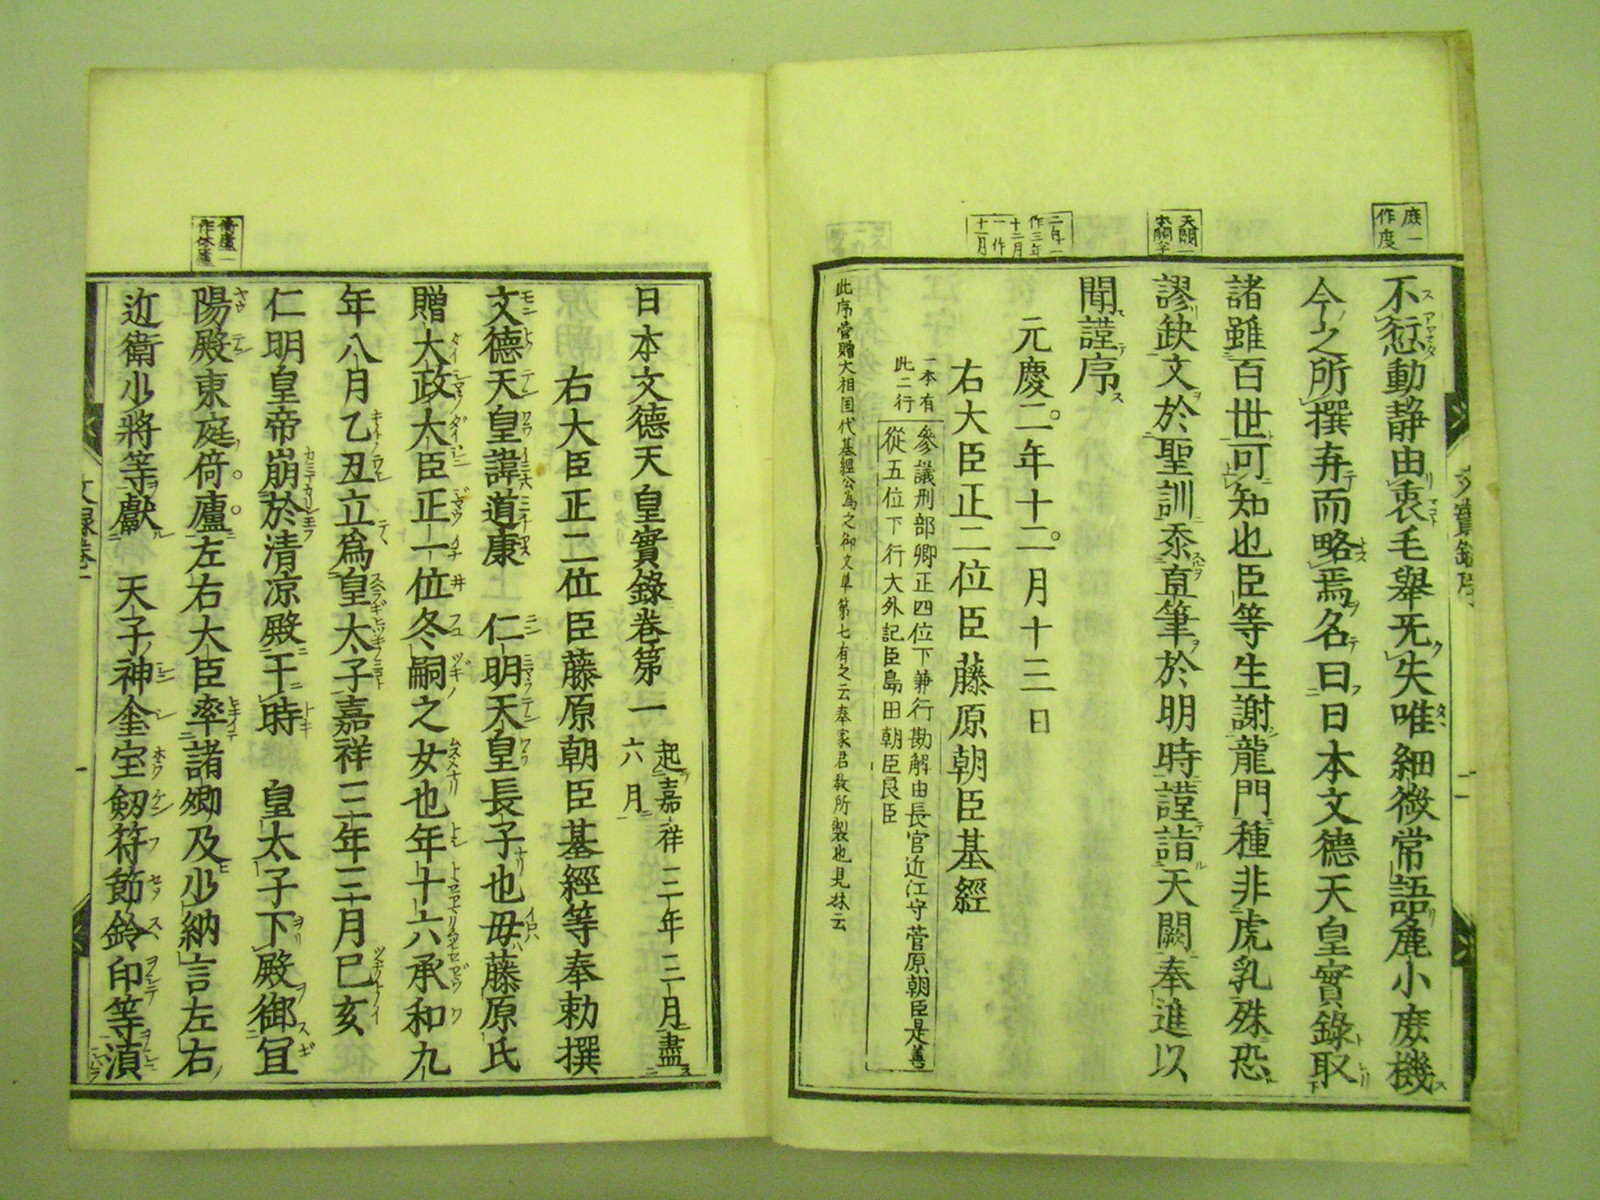 庶一
作度
不愆動靜由衷毛舉无失唯細微常語麁小庶機
今之所撰弃而略焉名曰日本文德天皇實錄取
諸雖百世可知也臣等生謝龍門種非虎乳殊恐
天闕一
謬缺文於聖訓忝直筆於明時謹詣天闕奉進以
聞謹序
二年一
作三年
十二月
一作
十一月
元慶二年十二月十三日
右大臣正二位臣藤原朝臣基經
一本有
此二行
參議刑部卿正四位下兼行勘解由長官近江守菅原朝臣是善
從五位下行大外記臣島田朝臣良臣
此序菅贈大相国代基經公為之御文草第七有之云奉家君教所製也見抹云
文實錄序
二
日本文德天皇實錄卷第一
起嘉祥三年三月盡
六月
右大臣正二位臣藤原朝臣基經等奉勅撰
文德天皇諱道康 仁明天皇長子也母藤原氏
贈大政大臣正一位冬嗣之女也年十六承和九
年八月乙丑立爲皇太子嘉祥三年三月己亥
仁明皇帝崩於清凉殿于時 皇太子下殿御宜
倚廬一
作休廬
陽殿東庭倚廬左右大臣率諸卿及少納言左右
近衛少將等獻 天子神金宝劔符節鈴印等湏
文錄卷一
一